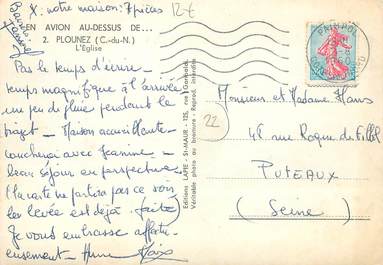 X: notre maison: 7 pièces
12 €
EN AVION AU-DESSUS DE...
2. PLOUNEZ (C.-du-N.)
L'Eglise
Pas le temps d'écrire
temps magnifique à l'arrivée
un peu de pluie pendant le
trajet - Maison accueillante -
coucherai avec Jeanine -
beau séjour en perspective
(la carte ne partira pas ce soir
la levée est déjà faite)
Je vous embrasse affectu-
eusement -
Editions LAPIE - SI-MAUR - 125, rue Garibaldi
Véritable photo au bromure - Reprod. interdite
PAIMPOL
22
Monsieur et Madame
48 rue Roque de Fillol
PUTEAUX
(Seine)